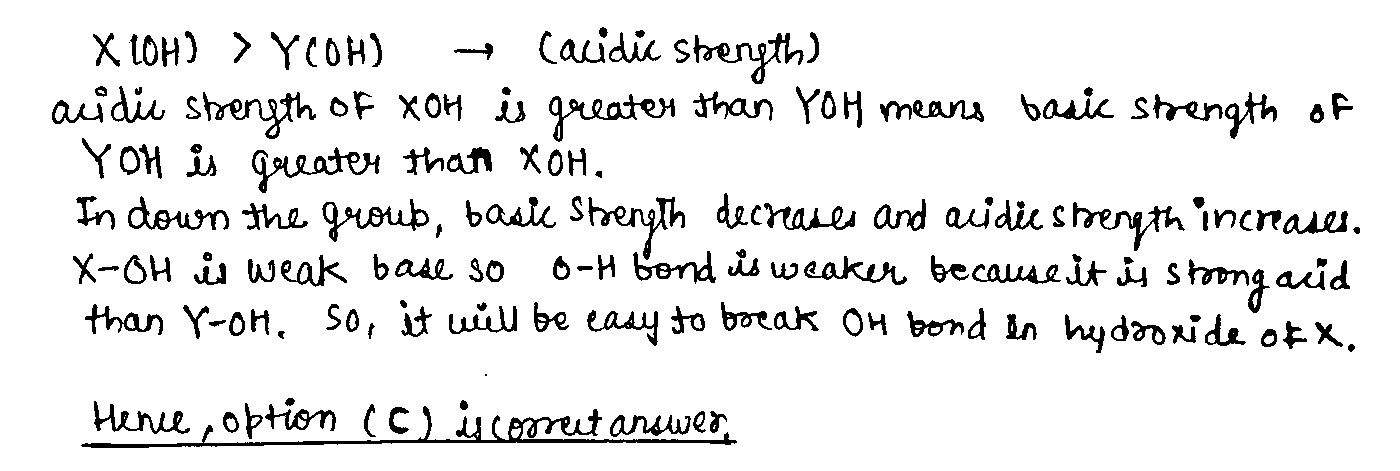 X(OH) > Y(OH) → (acidic strength)
acidic strength of XOH is greater than YOH means basic strength of
YOH is greater than XOH.
In down the group, basic strength decreases and acidic strength increases.
X-OH is weak base so O-H bond is weaker because it is strong acid
than Y-OH. So, it will be easy to break OH bond in hydroxide of X.
Hence, option (C) is correct answer.